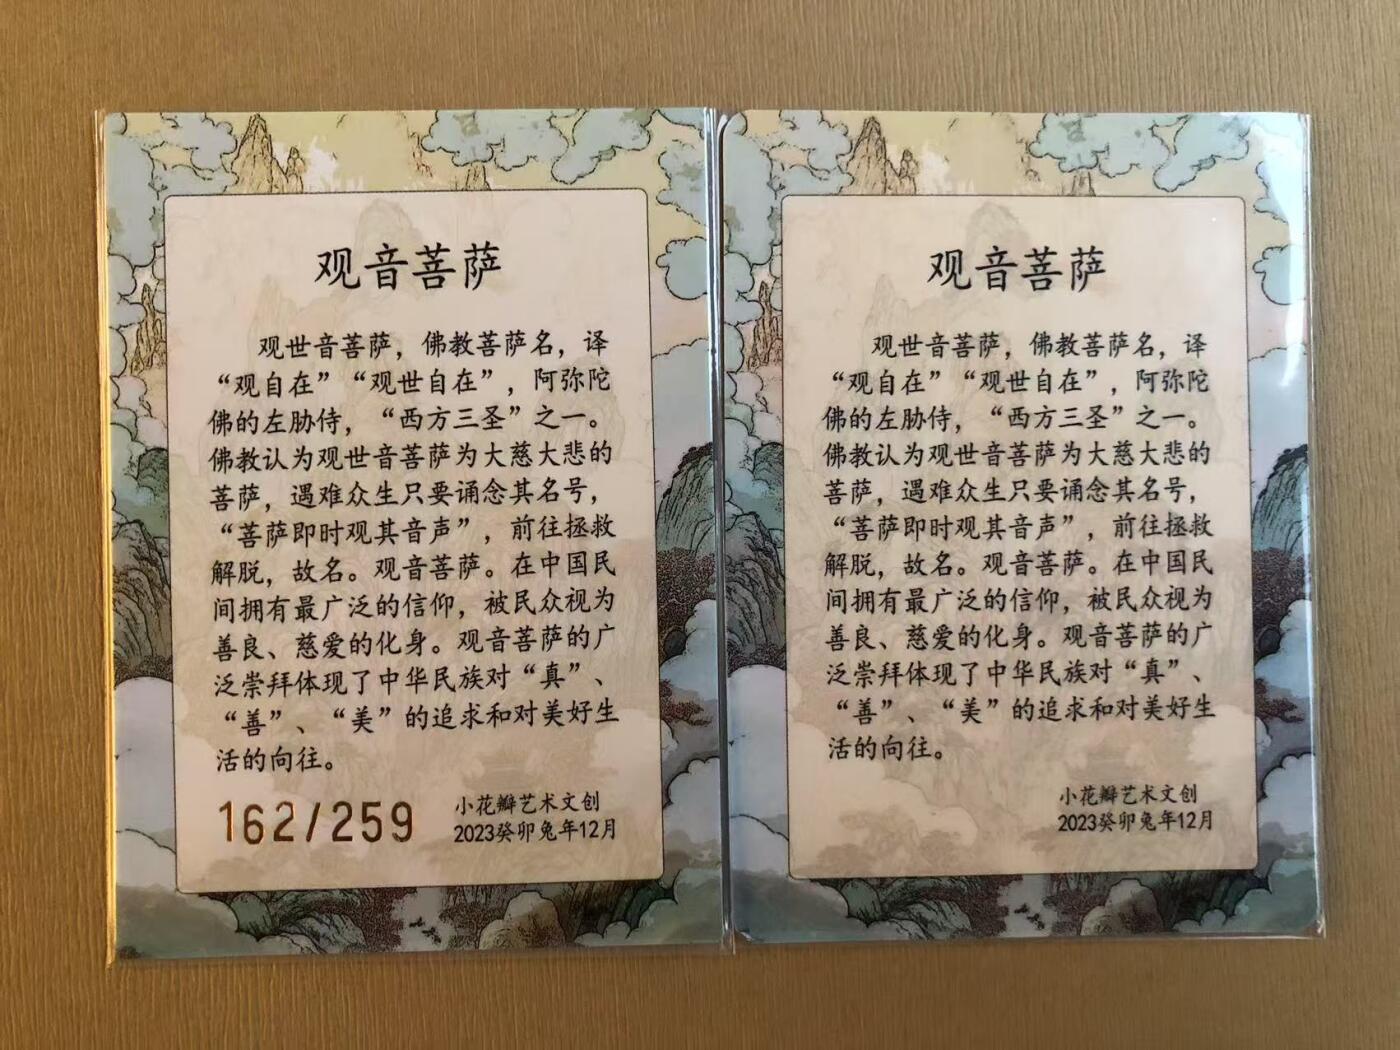 观音菩萨
观世音菩萨，佛教菩萨名，译
“观自在”“观世自在”，阿弥陀
佛的左胁侍，“西方三圣”之一。
佛教认为观世音菩萨为大慈大悲的
菩萨，遇难众生只要诵念其名号，
“菩萨即时观其音声”，前往拯救
解脱，故名。观音菩萨。在中国民
间拥有最广泛的信仰，被民众视为
善良、慈爱的化身。观音菩萨的广
泛崇拜体现了中华民族对“真”、
“善”、“美”的追求和对美好生
活的向往。
162/259
小花瓣艺术文创
2023癸卯兔年12月
观音菩萨
观世音菩萨，佛教菩萨名，译
“观自在”“观世自在”，阿弥陀
佛的左胁侍，“西方三圣”之一。
佛教认为观世音菩萨为大慈大悲的
菩萨，遇难众生只要诵念其名号，
“菩萨即时观其音声”，前往拯救
解脱，故名。观音菩萨。在中国民
间拥有最广泛的信仰，被民众视为
善良、慈爱的化身。观音菩萨的广
泛崇拜体现了中华民族对“真”、
“善”、“美”的追求和对美好生
活的向往。
小花瓣艺术文创
2023癸卯兔年12月